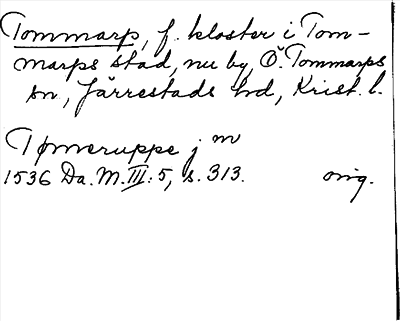 Tommarp, f. kloster i Tom-
marps stad, nu by, Ö. Tommarps
sn, Järrestads hd, Krist. l.
Tømeruppe j m
1536 Da. M. III: 5, s. 313. orig.